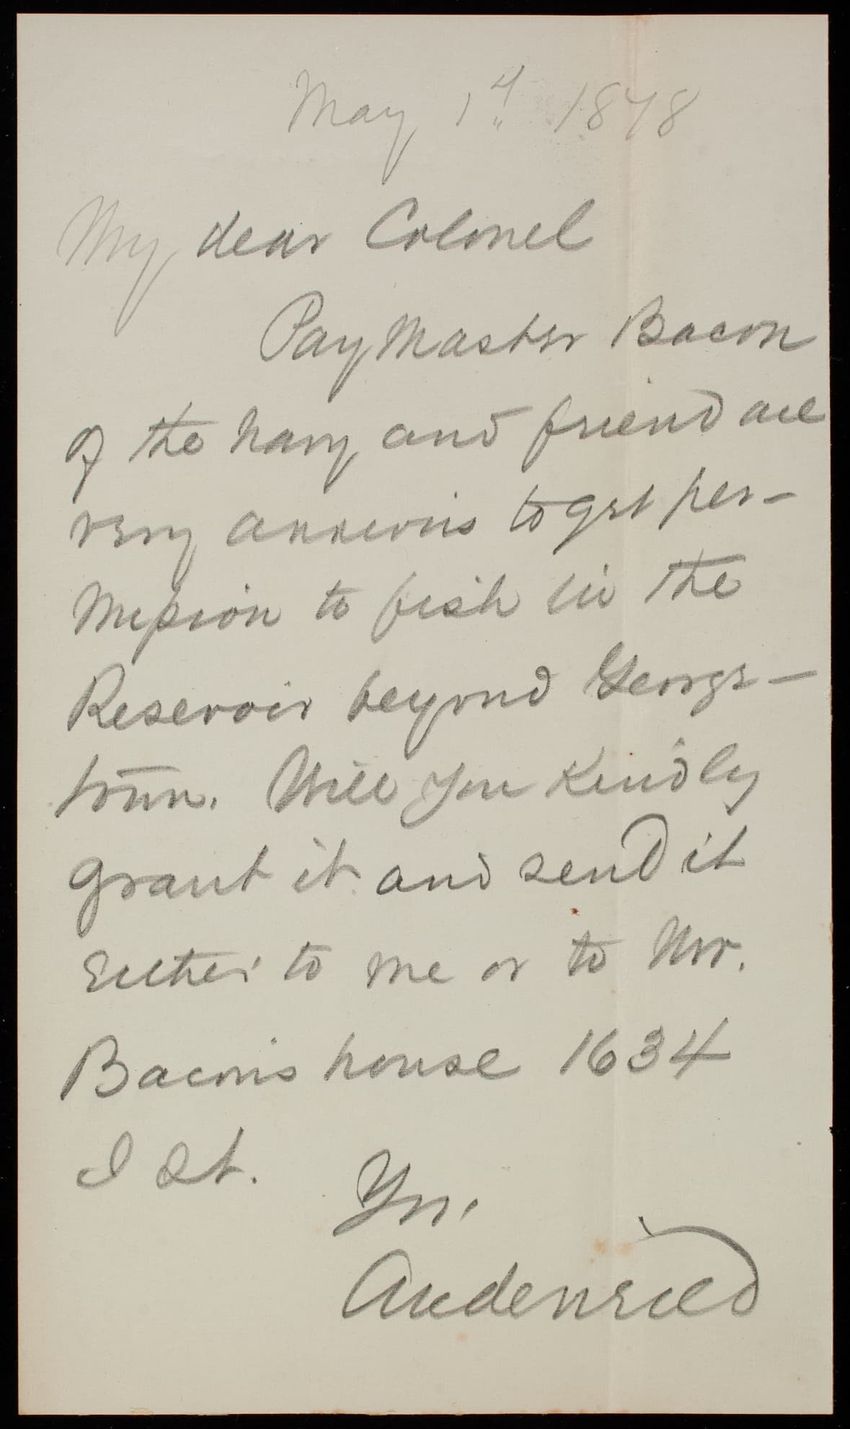 May 1st 1878
My dear Colonel
PayMaster Bacon
of the Navy and friend are
very anxious to get per-
mission to fish in the
Reservoir beyond George-
town. Will you kindly
grant it and send it
Either to me or to Mr.
Bacon's house 1634
I St.
Yrs.
Audenried